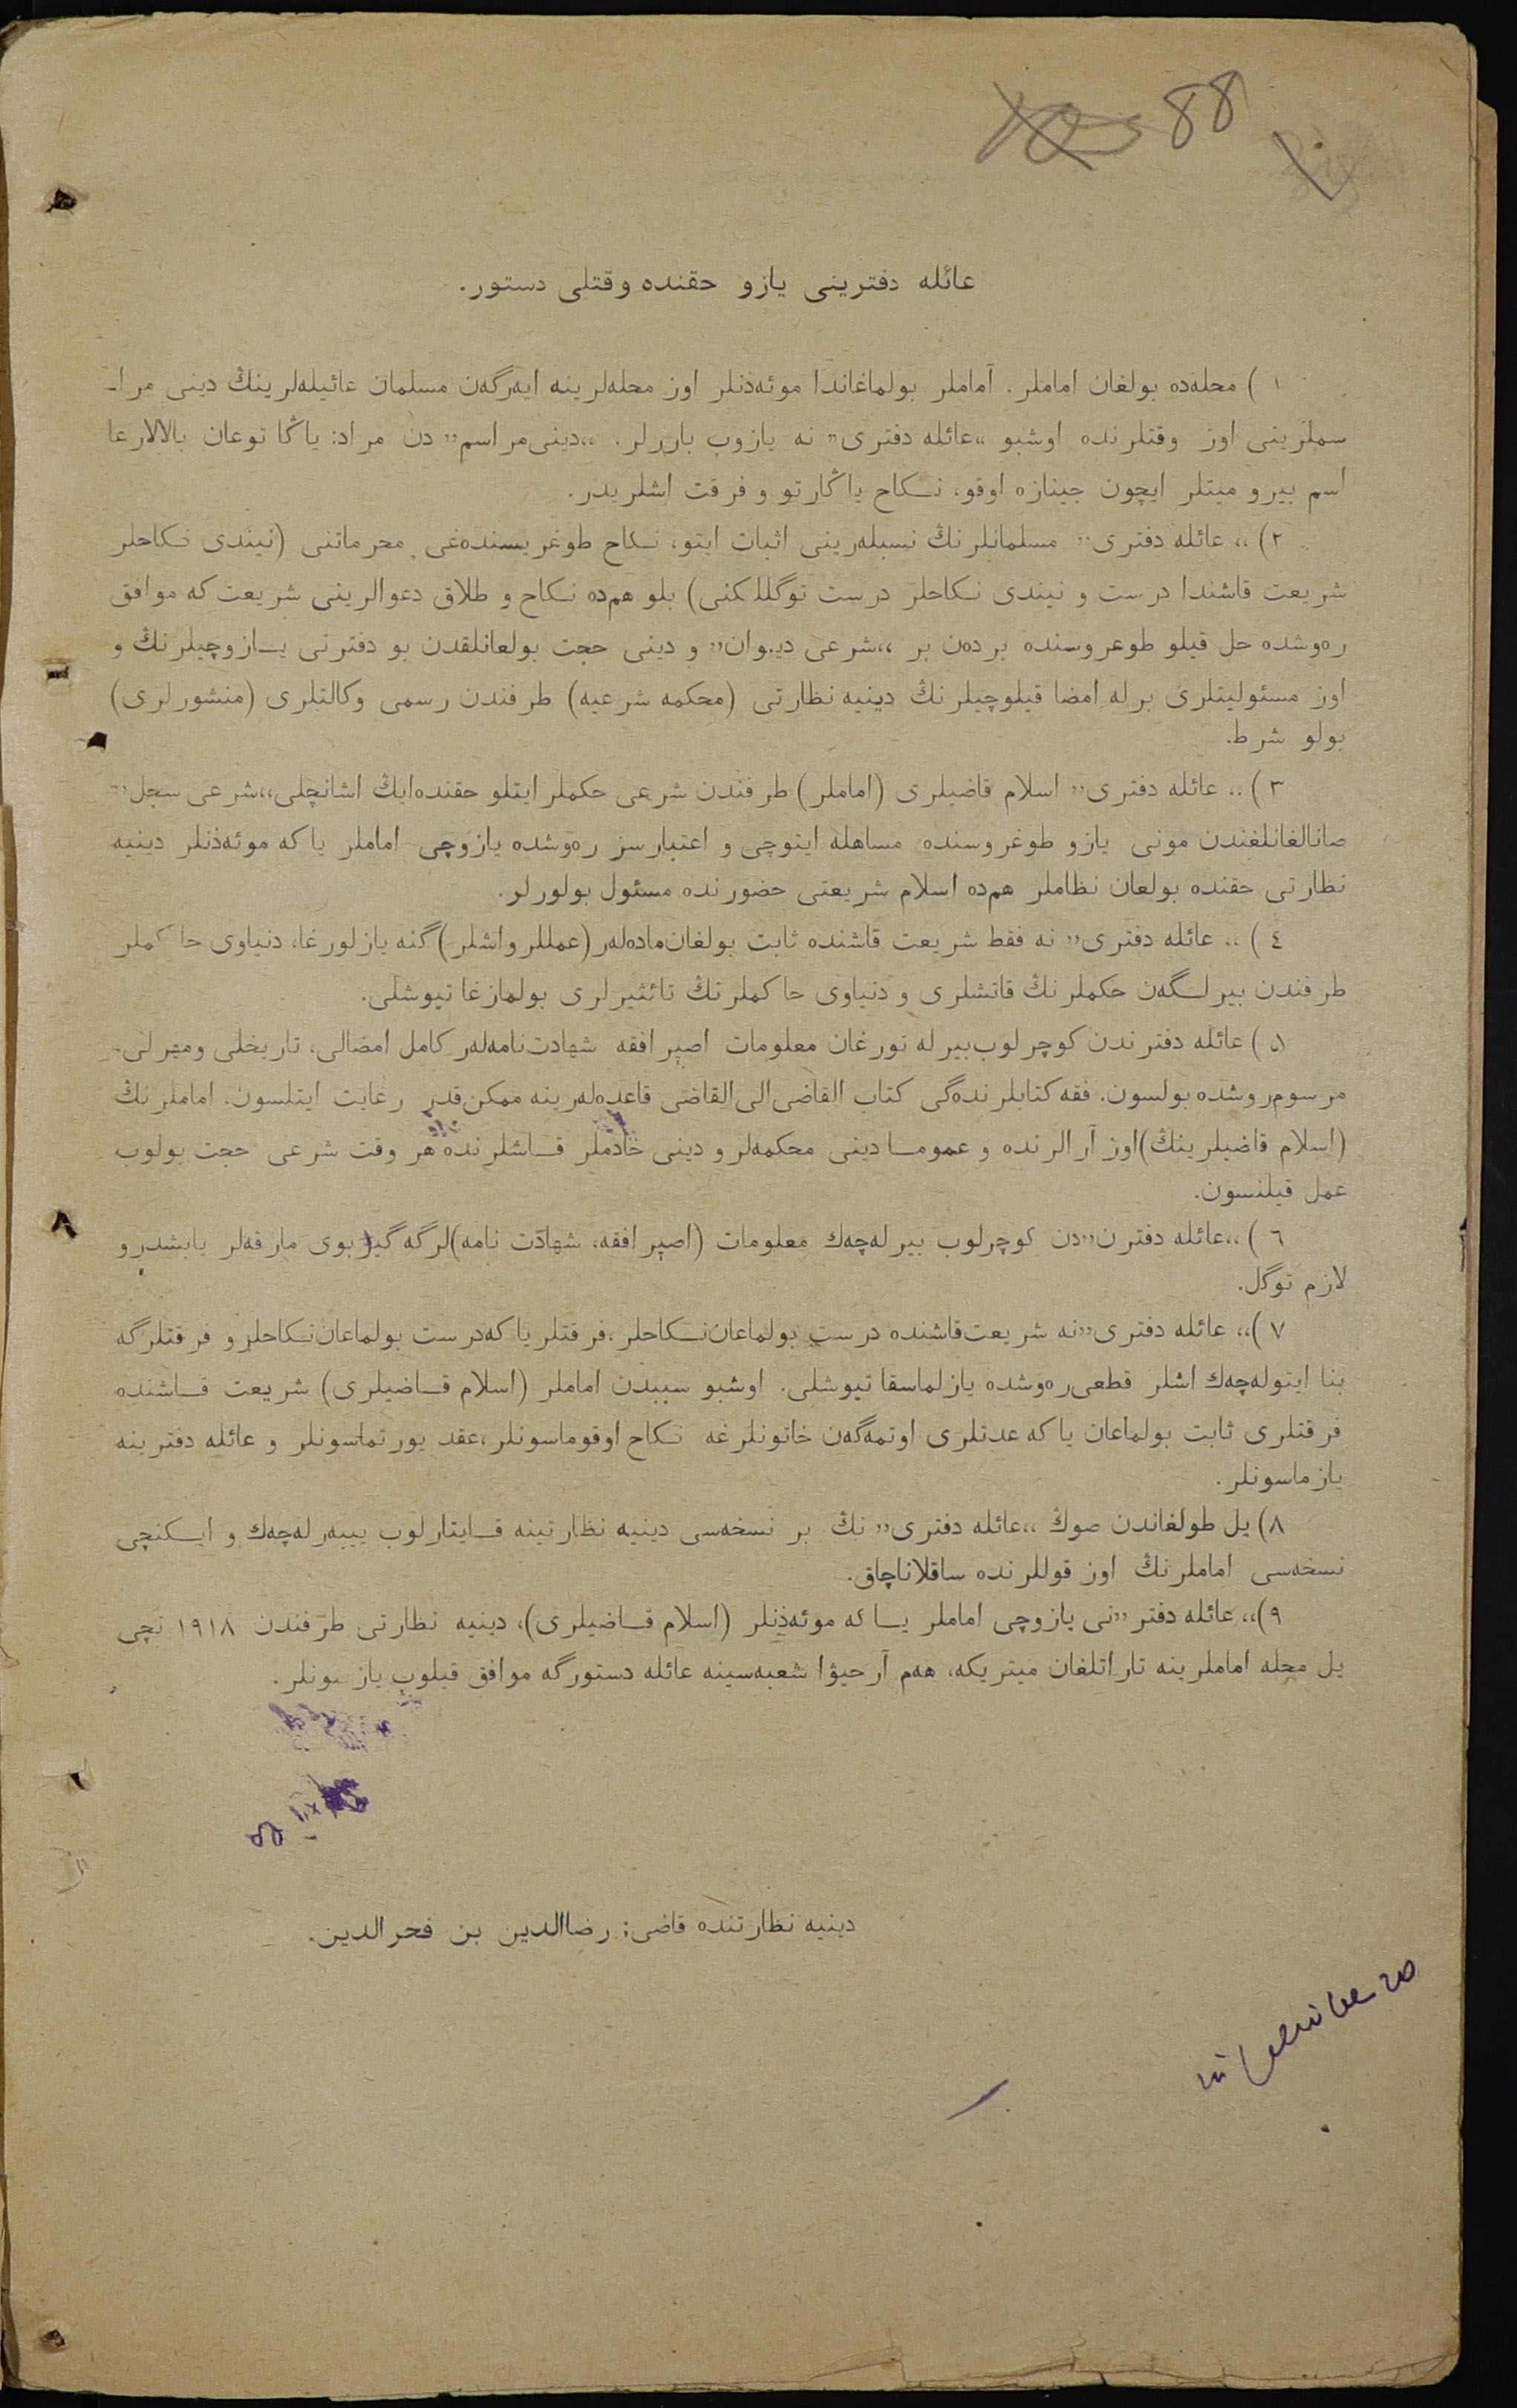 88
عائله دفترینی یازو حقنده وقتلی دستور.
١ ) محله‌ده بولغان اماملر. آماملر بولماغاندا موئه‌ذنلر اوز محله‌لرینه ایه‌رگه‌ن مسلمان عائیله‌لرینڭ دینی مرا-
سملرینی اوز وقتلرنده اوشبو „عائله دفتری” نه یازوب باررلر. „دینی مراسم” دن مراد: یاڭا توعان بالالارعا
اسم بیرو میتلر ایچون جینازه اوقو، نكاح یاڭارتو و فرقت اشلریدر.
٢) „ عائله دفتری” مسلمانلرنڭ نسبله‌رینی اثبات ایتو، نكاح طوغریسنده‌غی محرماتنی (نیندی نكاحلر
شریعت قاشندا درست و نیندی نكاحلر درست توگللكنی) بلو هم‌ده نكاح و طلاق دعوالرینی شریعت كه موافق
ره‌وشده حل قیلو طوعروسنده برده‌ن بر „شرعی دیوان” و دینی حجت بولعانلقدن بو دفترنی یازوچیلرنڭ و
اوز مسئولیتلری برله امضا قیلوچیلرنڭ دینیه نظارتی (محكمه شرعیه) طرفندن رسمی وكالتلری (منشورلری)
بولو شرط.
٣ ) „ عائله دفتری” اسلام قاضیلری (اماملر) طرفندن شرعی حكملر ایتلو حقنده ایڭ اشانچلی „شرعی سجل”
صانالغانلغندن مونی یازو طوغروسنده مساهله ایتوچی و اعتبارسز ره‌وشده یازوچی اماملر یا كه موئه‌ذنلر دینیه
نظارتی حقنده بولعان نظاملر هم‌ده اسلام شریعتی حضورنده مسئول بولورلر.
٤ ) „ عائله دفتری” نه فقط شریعت قاشنده ثابت بولغان ماده‌لەر (عمللر واشلر) گنه یازلورغا، دنیاوی حاكملر
طرفندن بیرلگه‌ن حكملرنڭ قاتشلری و دنیاوی حاكملرنڭ تائثیرلری بولمازغا تیوشلی.
٥ ) عائله دفترندن كوچرلوب بیرله تورغان معلومات اصپرافقه شهادت‌نامه‌لەر كامل امضالی، تاریخلی ومهرلی-
مرسوم روشده بولسون. فقه كتابلرنده‌گی كتاب القاضی الی القاضی قاعده‌لەرینه ممكن قدر رعایت ایتلسون. اماملرنڭ
(اسلام قاضیلرینڭ) اوز آرالرنده و عموما دینی محكمه‌لر و دینی خادملر قاشلرنده هر وقت شرعی حجت بولوب
عمل قیلنسون.
٦ ) „عائله دفترن” دن كوچرلوب بیرله‌چەك معلومات (اصپرافقه، شهادت نامه) لرگه گیربوی مارقه‌لر یابشدرو
لازم توگل.
٧ ) „ عائله دفتری” نه شریعت قاشنده درست بولماعان نكاحلر، فرقتلر یا كه درست بولماعان نكاحلر و فرقتلرگه
بنا ایتوله‌چەك اشلر قطعی ره‌وشده یازلماسقا تیوشلی. اوشبو سببدن اماملر (اسلام قاضیلری) شریعت قاشنده
فرقتلری ثابت بولماعان یا كه عدتلری اوتمه‌گه‌ن خاتونلرغه نكاح اوقوماسونلر، عقد یورتماسونلر و عائله دفترینه
یازماسونلر.
٨) یل طولغاندن صوڭ „عائله دفتری” نڭ بر نسخه‌سی دینیه نظارتینه قایتارلوب ییبه‌رله‌چەك و ایكنچی
نسخه‌سی اماملرنڭ اوز قوللرنده ساقلاناچاق.
٩) „ عائله دفتر” نی یازوچی اماملر یا كه موئه‌ذنلر (اسلام قاضیلری)، دینیه نظارتی طرفندن ١٩١٨ نچی
یل محله اماملرینه تاراتلغان میتریكه، هەم آرحیۋا شعبه‌سینه عائله دستورگه موافق قیلوب یازسونلر.
دینیه نظارتنده قاضی: رضاالدین بن فخرالدین.